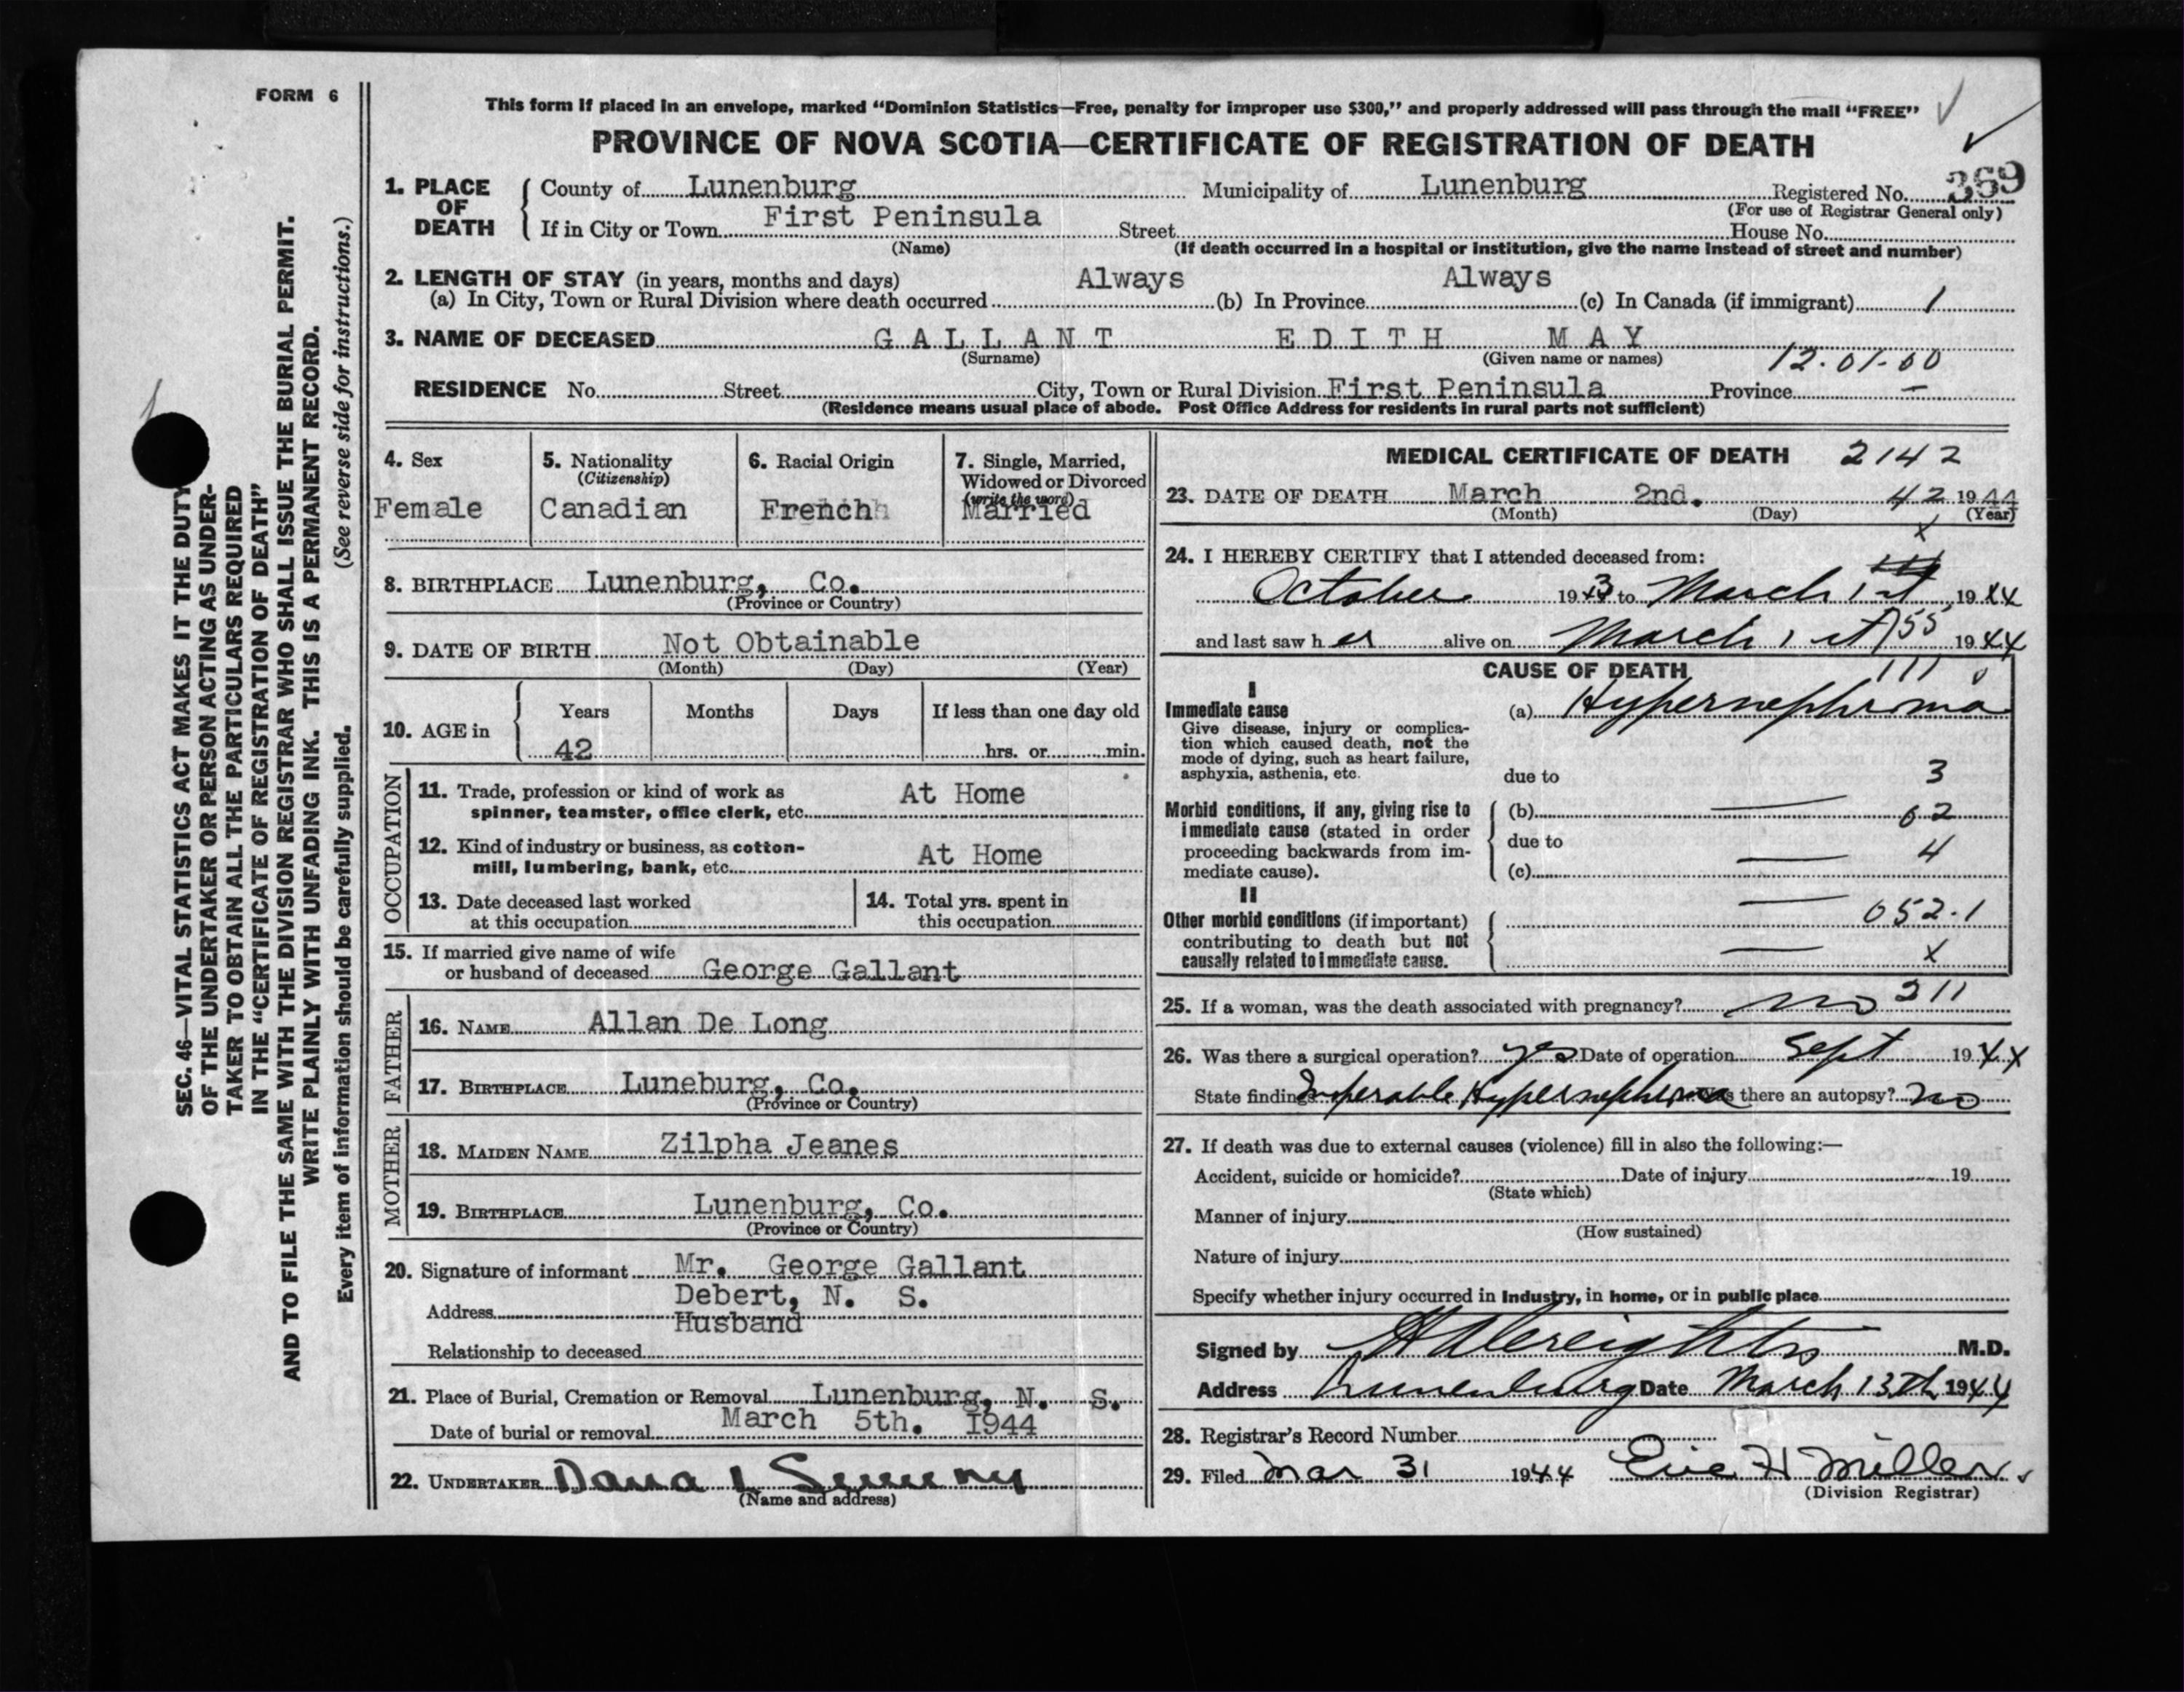 FORM 6
This form if placed in an envelope, marked “Dominion Statistics—Free, penalty for improper use $300,” and properly addressed will pass through the mail “FREE”
PROVINCE OF NOVA SCOTIA—CERTIFICATE OF REGISTRATION OF DEATH
SEC. 46—VITAL STATISTICS ACT MAKES IT THE DUTY
OF THE UNDERTAKER OR PERSON ACTING AS UNDER-
TAKER TO OBTAIN ALL THE PARTICULARS REQUIRED
IN THE “CERTIFICATE OF REGISTRATION OF DEATH”
AND TO FILE THE SAME WITH THE DIVISION REGISTRAR WHO SHALL ISSUE THE BURIAL PERMIT.
WRITE PLAINLY WITH UNFADING INK. THIS IS A PERMANENT RECORD.
Every item of information should be carefully supplied. (See reverse side for instructions.)
1. PLACE OF DEATH County of Lunenburg Municipality of Lunenburg Registered No. 369
(For use of Registrar General only)
If in City or Town First Peninsula Street House No.
(Name) (If death occurred in a hospital or institution, give the name instead of street and number)
2. LENGTH OF STAY (in years, months and days)
(a) In City, Town or Rural Division where death occurred Always (b) In Province Always (c) In Canada (if immigrant) 1
3. NAME OF DECEASED GALLANT EDITH MAY
(Surname) (Given name or names) 12.01-00
RESIDENCE No. Street City, Town or Rural Division First Peninsula Province —
(Residence means usual place of abode. Post Office Address for residents in rural parts not sufficient)
4. Sex
Female
5. Nationality
(Citizenship)
Canadian
6. Racial Origin
French
7. Single, Married,
Widowed or Divorced
(write the word)
Married
8. BIRTHPLACE Lunenburg, Co.
(Province or Country)
9. DATE OF BIRTH Not Obtainable
(Month) (Day) (Year)
10. AGE in Years Months Days If less than one day old
42 hrs. or min.
OCCUPATION
11. Trade, profession or kind of work as
spinner, teamster, office clerk, etc. At Home
12. Kind of industry or business, as cotton-
mill, lumbering, bank, etc. At Home
13. Date deceased last worked
at this occupation
14. Total yrs. spent in
this occupation
15. If married give name of wife
or husband of deceased George Gallant
FATHER
16. NAME Allan De Long
17. BIRTHPLACE Luneburg, Co.
(Province or Country)
MOTHER
18. MAIDEN NAME Zilpha Jeanes
19. BIRTHPLACE Lunenburg, Co.
(Province or Country)
20. Signature of informant Mr. George Gallant
Address Debert, N. S.
Husband
Relationship to deceased
21. Place of Burial, Cremation or Removal Lunenburg, N. S.
Date of burial or removal March 5th. 1944
22. UNDERTAKER Dana L Sweeny
(Name and address)
MEDICAL CERTIFICATE OF DEATH 2142
23. DATE OF DEATH March 2nd. 42 1944
(Month) (Day) (Year)
x
24. I HEREBY CERTIFY that I attended deceased from:
October 1943 to March 1st 1944
and last saw her alive on March 1st 1944
755
CAUSE OF DEATH
I
Immediate cause
Give disease, injury or complica-
tion which caused death, not the
mode of dying, such as heart failure,
asphyxia, asthenia, etc.
(a) Hypernephroma
due to 3
Morbid conditions, if any, giving rise to
immediate cause (stated in order
proceeding backwards from im-
mediate cause).
(b) — 62
due to 4
(c) —
II
Other morbid conditions (if important)
contributing to death but not
causally related to immediate cause.
— 052.1
— x
25. If a woman, was the death associated with pregnancy? no 211
26. Was there a surgical operation? yes Date of operation Sept 1944
State findings Inoperable Hypernephroma Was there an autopsy? no
27. If death was due to external causes (violence) fill in also the following:—
Accident, suicide or homicide? Date of injury 19
(State which)
Manner of injury
(How sustained)
Nature of injury
Specify whether injury occurred in Industry, in home, or in public place
Signed by M.D.
Address Lunenburg Date March 13th 1944
28. Registrar's Record Number
29. Filed Mar 31 1944 H Miller
(Division Registrar)